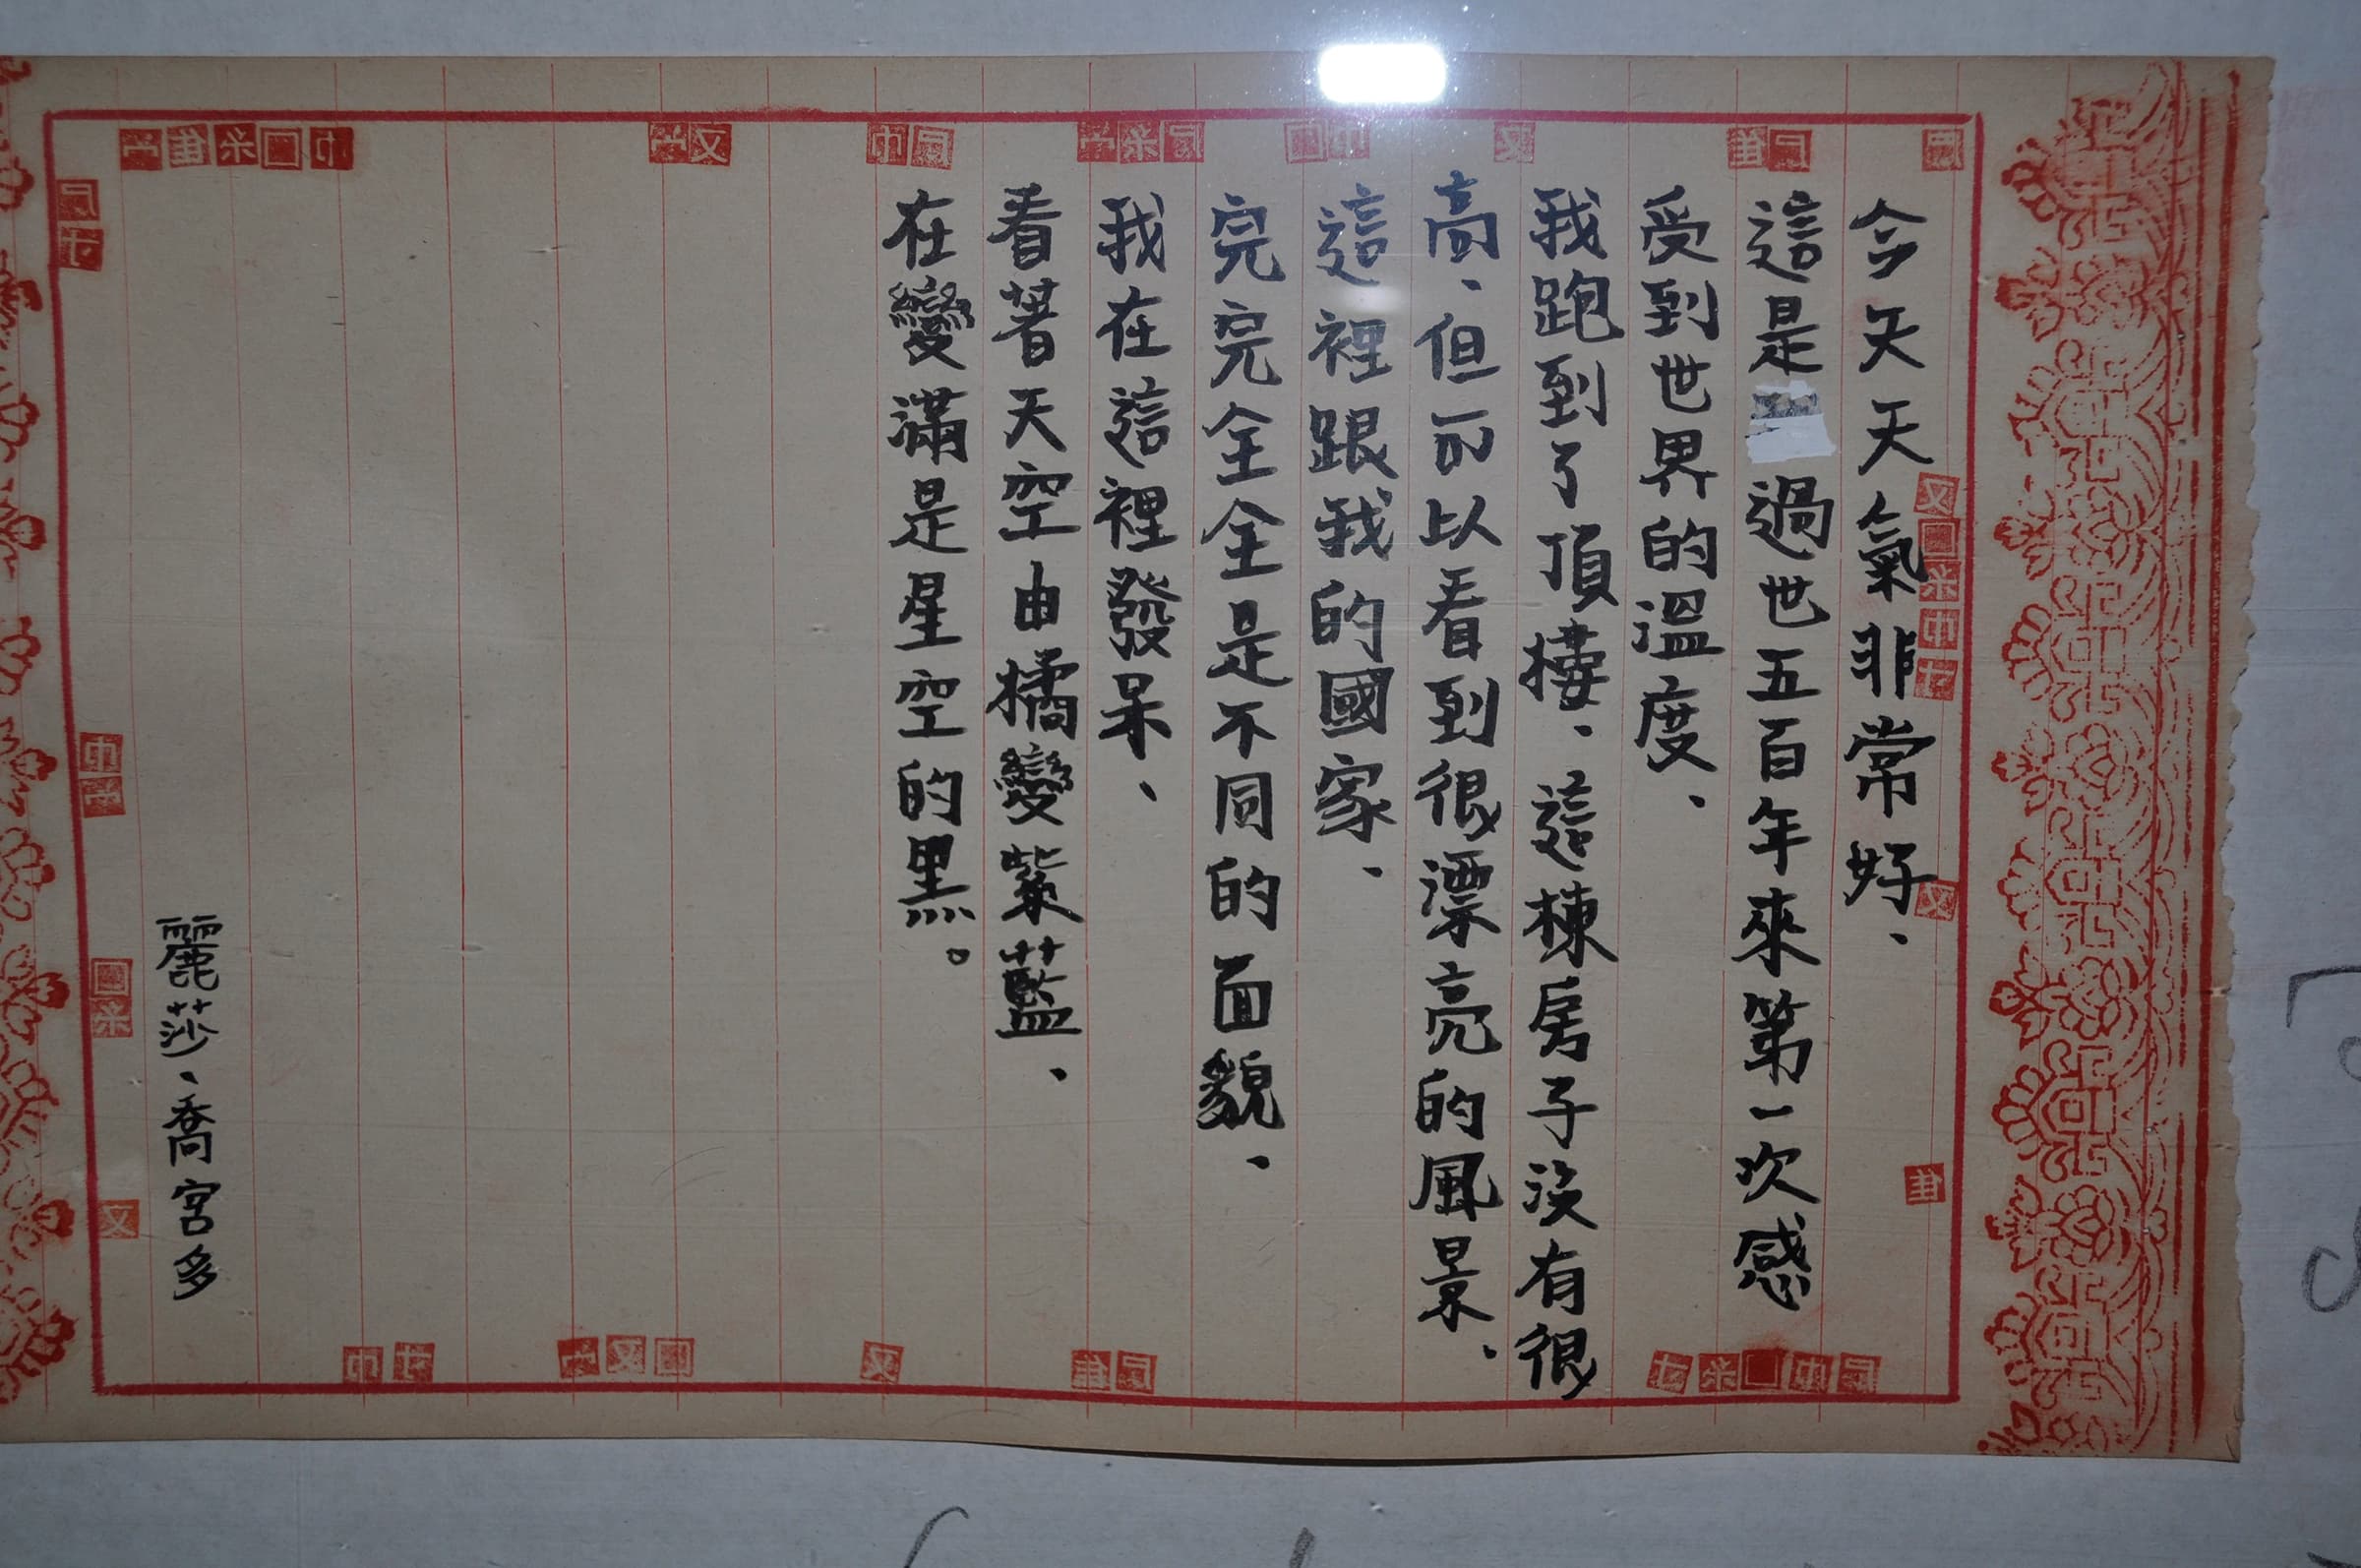 今天天氣非常好、
這是過世五百年來第一次感
受到世界的溫度、
我跑到了頂樓、這棟房子沒有很
高、但可以看到很漂亮的風景、
這裡跟我的國家、
完完全全是不同的面貌、
我在這裡發呆、
看著天空由橘變紫藍、
在變滿是星空的黑。
麗莎、喬宮多